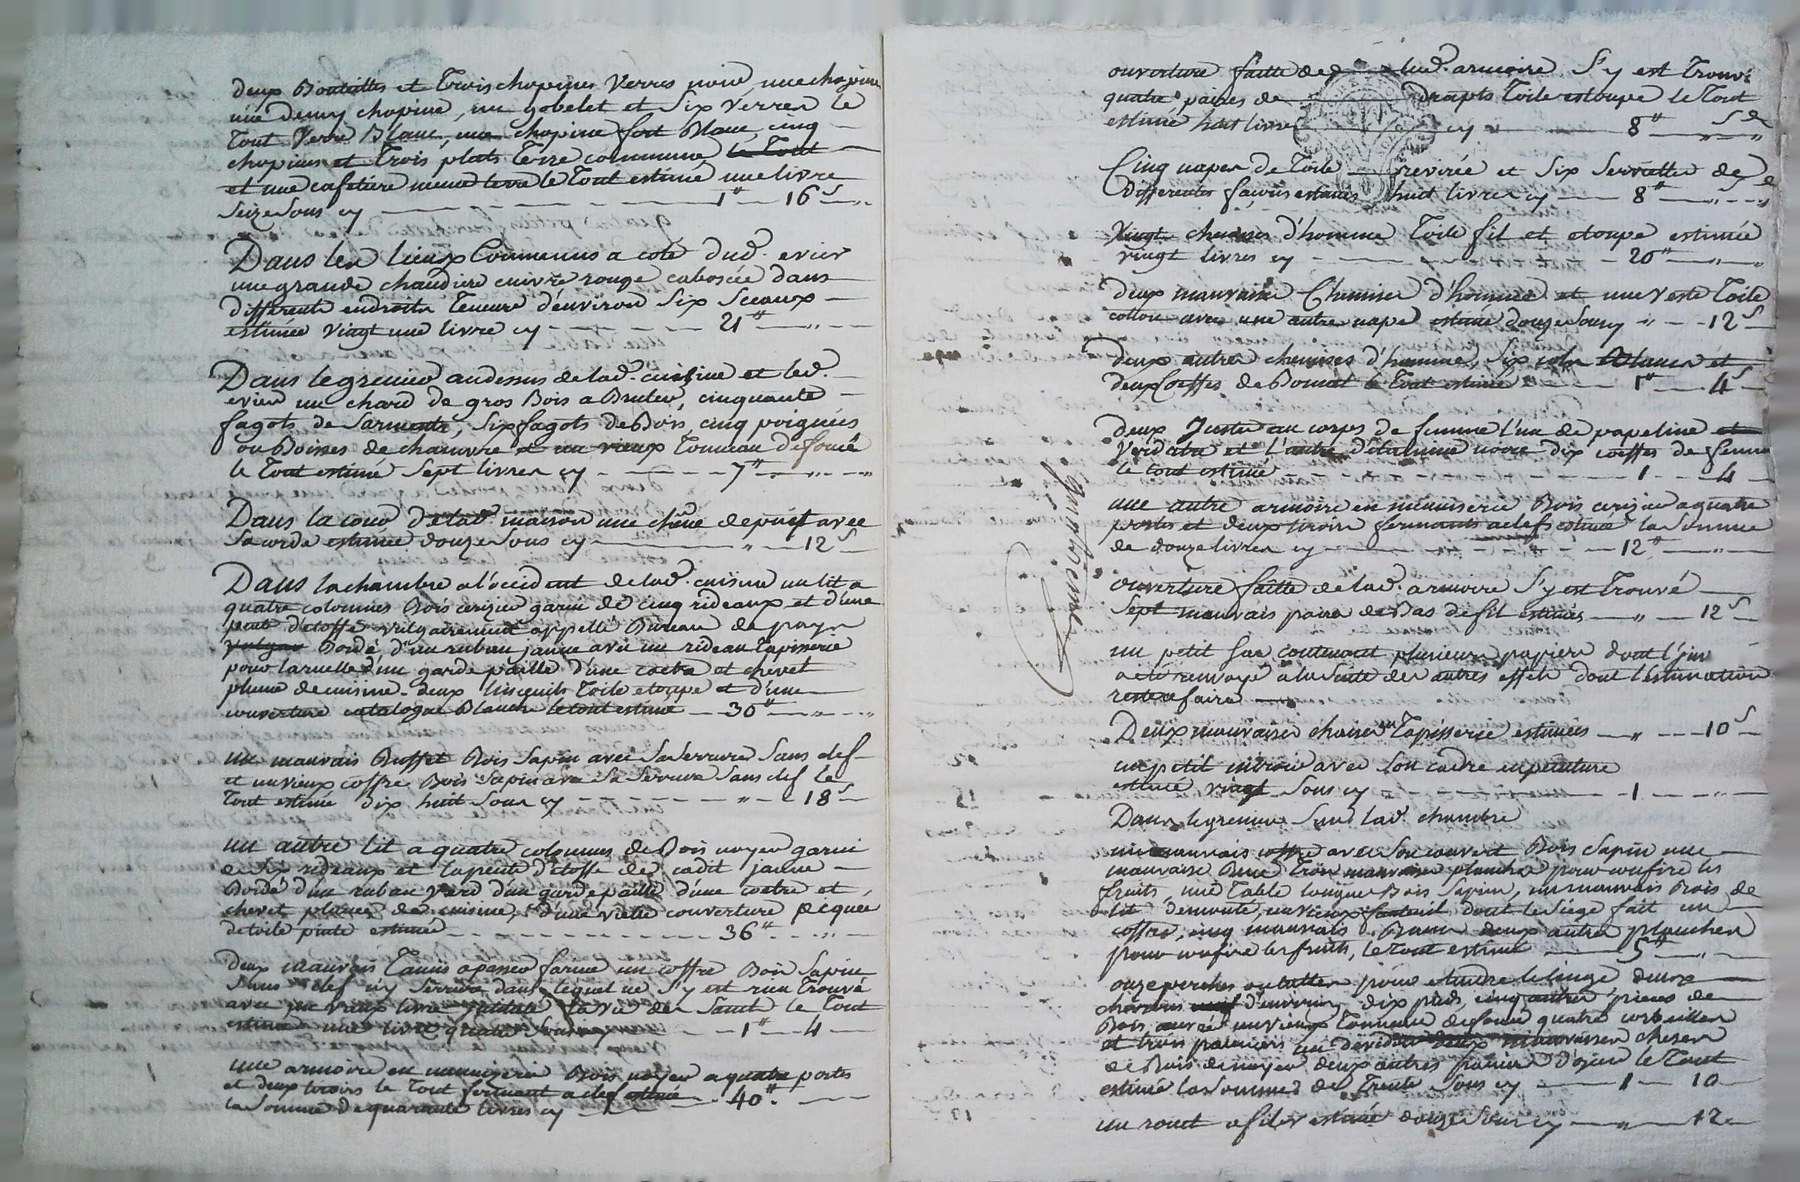 deux Bouteilles et Trois chopines Verres noir, une chopine
une demy chopine, un gobelet et Six Verres le
Tout Verre Blanc, une chopine fort Blanc, cinq
chopines et Trois plats Terre commune, le Tout
et une cafetiere meme terre le Tout estimé une livre
Seize Sous cy 1# 16 s
Dans les lieux Communs a coté dud. evier
une grande chaudiere cuivre rouge cabossée dans
differents endroits Teneur d'environ Six Sceaux
estimée vingt une livre cy 21#
Dans le grenier au dessus de lad. cuisine et led.
evier un chard de gros Bois a Bruler, cinquante
fagots de Sarments, Six fagots de Bois, cinq poignées
ou Boisses de chanvre et un vieux Tonneau defoncé
le Tout estimé Sept livres cy 7#
Dans la cour de lad. maison une chêne de puit avec
Sa corde estimée douze Sous cy 12 s
Dans la chambre a l'occident de lad. cuisine un lit a
quatre colonnes Bois cerizier garni de cinq rideaux et d'une
pente d'etoffe vulgairement appellé Bureau de pays
Bordé d'un ruban jaune avec un rideau Tapisserie
pour la ruelle d'un garde paille d'une coetre et chevet
plume de cuisine deux linceuils Toile etoupe et d'une
couverture catalogne Blanche le tout estimé 30#
un mauvais Buffet Bois Sapin avec Sa Serrure Sans clef
et un vieux coffre Bois Sapin avec Sa Serrure Sans clef le
Tout estimé dix huit Sous cy 18 s
un autre lit a quatre colonnes de Bois noyer garni
de Six rideaux et la pente d'etoffe de cadit jaune
Bordé d'un ruban verd d'un garde paille d'une coetre et
chevet plumes de cuisine, d'une vielle couverture piquée
de toile pinte estimé 36#
Deux mauvais Tamis a passer farine un coffre Bois Sapin
Sans clef ny Serrure dans lequel ne S'y est rien Trouvé
avec un vieux livre intitulé la vie des Saints le Tout
estimé une livre quatre Sous cy 1# 4
une armoire en menuiserie Bois noyer a quatre portes
et deux tiroirs le Tout fermant a clef estimée
la Somme de quarante livres cy 40#
ouverture faitte de lad. armoire S'y est Trouvé
quatre paires de drapts Toile estoupe le Tout
estimé huit livres cy 8#
Cinq napes de Toile et Six Serviettes de
differentes façons estimés huit livres cy 8#
Vingt chemises d'homme Toile fil et etoupe estimée
vingt livres cy 20#
deux mauvaises Chemises d'homme et une veste Toile
cotton avec une autre nape estimé douze Sous cy 12 s
deux autres chemises d'homme, Six cols Blancs et
deux coeffes de Bonnet le Tout estimé 1# 4 s
deux Juste au corps de femme l'un de papeline et
et l'autre d'etamine noire dix coeffes de femme
le tout estimé 1 4
une autre armoire en menuiserie Bois cerisier a quatre
portes et deux tiroirs fermants a clefs estimée la Somme
de douze livres cy 12#
ouverture faitte de lad. armoire S'y est Trouvé
Sept mauvais paires de Bas de fil estimés 12 s
un petit Sac contenant plusieurs papiers dont l'inv
a été renvoyé a la Suite des autres effets dont l'estimation
reste a faire
Deux mauvaises chaises en Tapisserie estimées 10 s
un petit miroir avec Son cadre en peinture
estimé vingt Sous cy 1
Dans le grenier Sur lad. chambre
un mauvais coffre avec Son couvert Bois Sapin une
mauvaise Bene Trois mauvaises planches pour les
fruits, une Table longue Bois Sapin, un mauvais Bois de
lit demonté, un vieux fauteuil dont le Siége fait un
coffre, cinq mauvais Bancs deux autres planches
pour les fruits, le Tout estimé 5#
onze perches ou lattes pour etendre le linge deux
chevrons d'environ dix pieds, cinq autres pieces de
Bois un vieux Tonneau defoncé quatre corbeilles
et trois paniers un devidoir deux mauvaises cheses
de Bois de noyer deux autres d'ozier le Tout
estimé la Somme de Trente Sous cy 1 10
un rouet a filer estimé douze Sous cy 12